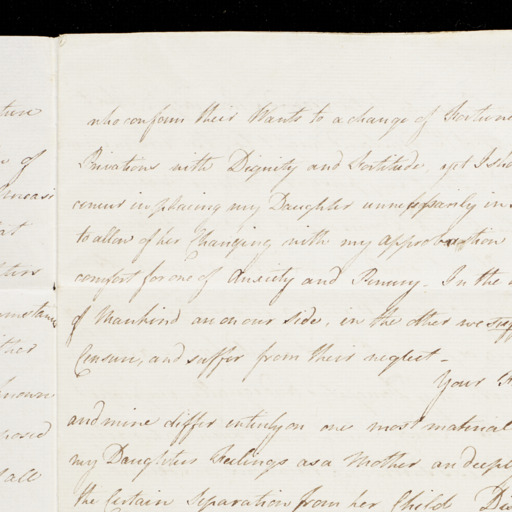 ture
of
at
known
posed
all
who conform their Wants to a change of Fortune
Privations with Dignity and Fortitude, yet I sh
censur in placing my Daughter unnecessarily in
to allow of her Changing with my approbation
comfort for one of Anxiety and Penury. In the
of Mankind are on our side, in the other we
Censure, and suffer from their neglect -
Your
and mine differ intirely on one most material
my Daughters Feelings as a Mother are deepl
the Certain Separation from her Child